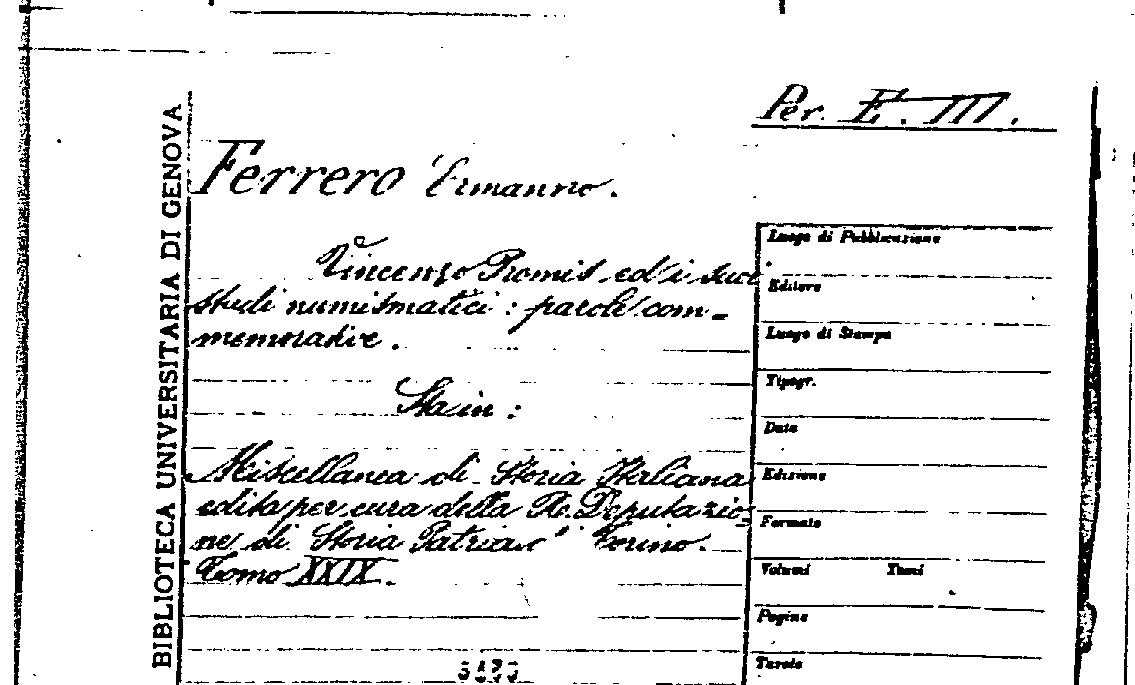 BIBLIOTECA UNIVERSITARIA DI GENOVA
Per. E. III.
Ferrero Ermanno.
Vincenzo Promis ed i suoi
studi numismatici: parole com-
memorative.
Sta in:
Miscellanea di Storia Italiana
edita per cura della R. Deputazio-
ne di Storia Patria Torino.
Tomo XXIX.
Luogo di Pubblicazione
Editore
Luogo di Stampa
Tipogr.
Data
Edizione
Formato
Volumi Tomi
Pagine
Tavole